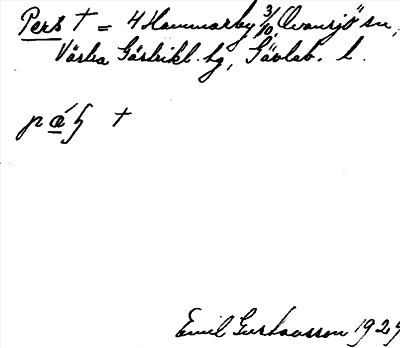 Pers † = 4 Hammarby 3/10, Ovansjö sn,
Västra Gästrikl. hg, Gävleb. l.
†
Emil Gustavsson 1924